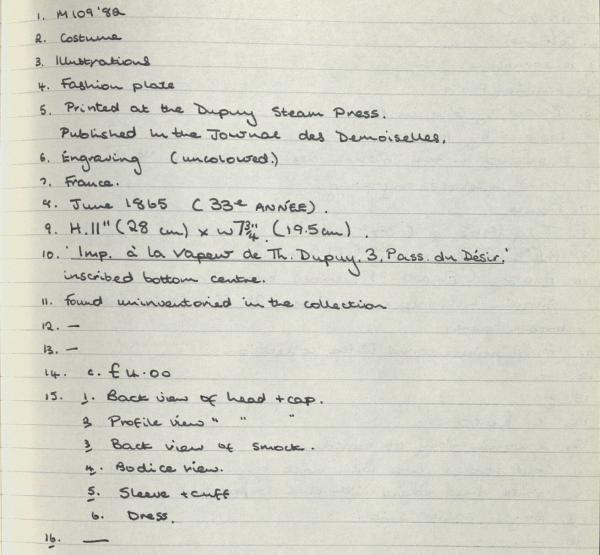 1. M109'82
2. Costume
3. Illustrations
4. Fashion plate
5. Printed at the Dupuy Steam Press.
Published in the Journal des Demoiselles.
6. Engraving (uncoloured.)
7. France.
8. June 1865 (33e ANNÉE).
9. H.11" (28 cm) x W7¾" (19.5cm).
10. 'Imp. à la vapeur de Th. Dupuy. 3, Pass. du Désir.'
inscribed bottom centre.
11. found uninventoried in the collection
12. —
13. —
14. c. £4.00
15. 1. Back view of head + cap.
2 Profile view " " "
3 Back view of smock.
4. Bodice view.
5. Sleeve + cuff
6. Dress.
16. —